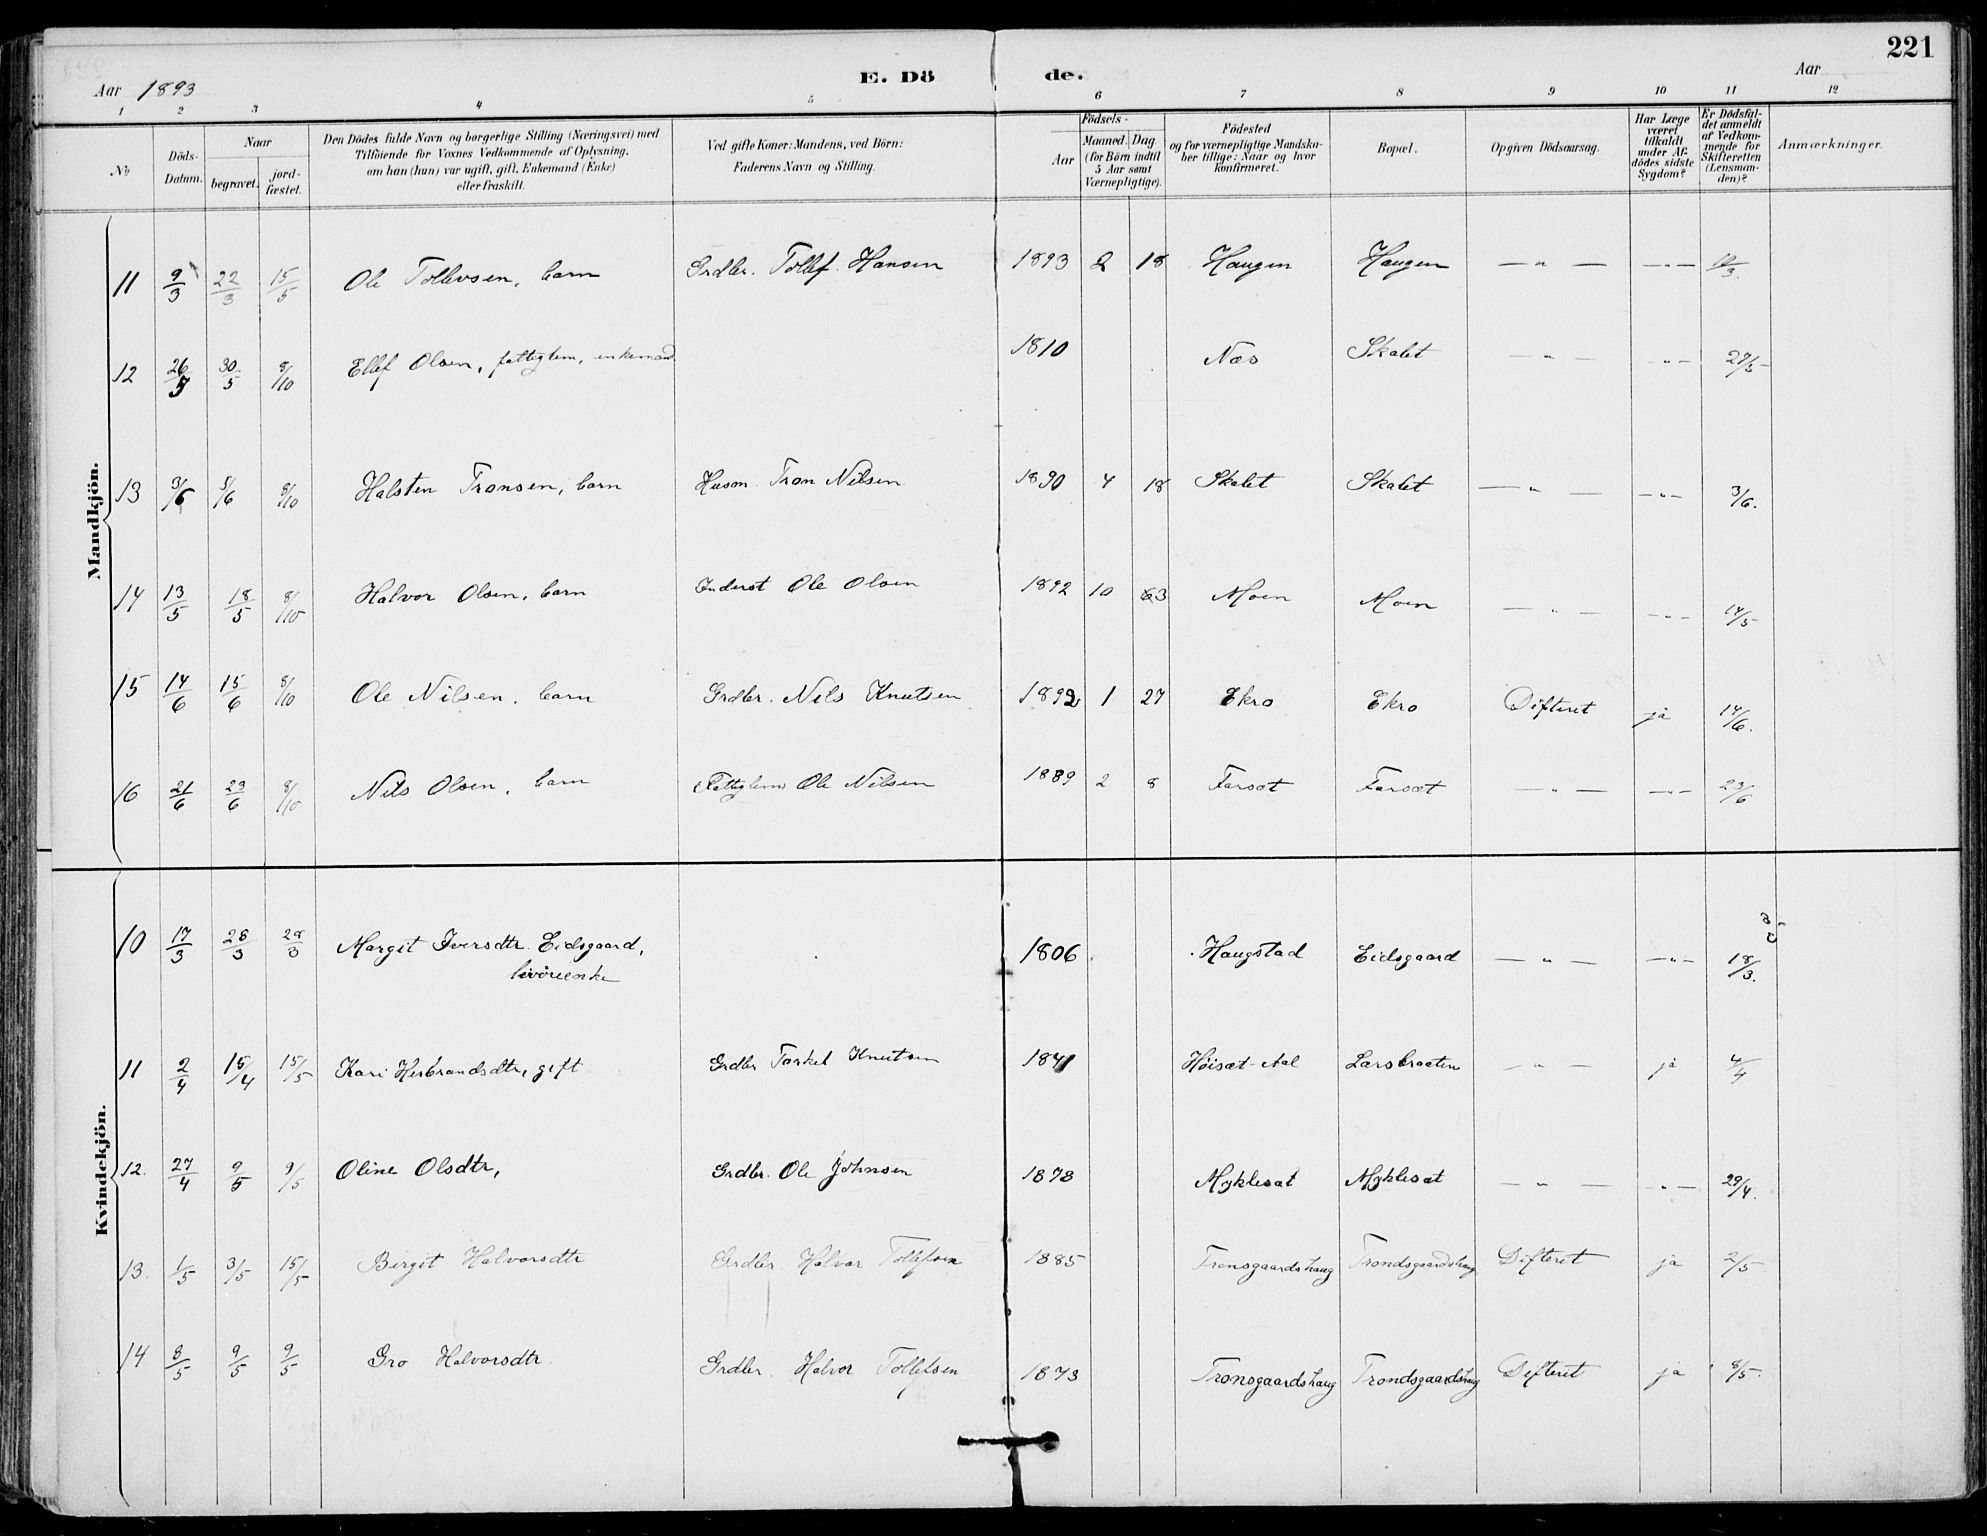 221
E. Döde.
Aar 1893
Aar
1 2 3 4 5 6 7 8 9 10 11 12
No
Döds-Datum.
Naar
begravet.
jord-fæstet.
Den Dödes fulde Navn og borgerlige Stilling (Næringsvei) med
Tilföiende for Voxnes Vedkommende af Oplysning,
om han (hun) var ugift, gift, Enkemand (Enke)
eller fraskilt.
Ved gifte Koner: Mandens, ved Börn:
Faderens Navn og Stilling.
Födsels-
Aar
Maaned. Dag.
(for Börn indtil
5 Aar samt
Værnepligtige).
Födested
og for værnepligtige Mandska-
ber tillige: Naar og hvor
konfirmeret.
Bopæl.
Opgiven Dödsaarsag.
Har Læge
været
tilkaldt
under Af-
dödes sidste
Sygdom?
Er Dödsfal-
det anmeldt
af Vedkom-
mende for
Skifteretten
(Lensman-
den)?
Anmærkninger.
Mandkjön.
11 9/3 22/3 15/5 Ole Tollevsen, barn Grdbr. Tollef Hansen 1893 2 18 Haugen Haugen — " — — " —
12 26/5 30/5 8/10 Ellef Olsen, fattiglem, enkemand 1810 Næs Skalet — " — — " — 27/5
13 3/6 5/6 8/10 Halsten Tronsen, barn Husm. Tron Nilsen 1890 4 18 Skalet Skalet — " — — " — 3/6.
14 13/5 18/5 8/10 Halvor Olsen, barn Inderst Ole Olsen 1892 10 Moen Moen — " — — " — 14/5
15 14/6 15/6 8/10 Ole Nilsen, barn Grdbr. Nils Knutsen 1892 1 27 Ekro Ekro Difterit ja 14/6.
16 21/6 23/6 8/10 Nils Olsen, barn Fattiglem Ole Nilsen 1889 2 8 Farsæt Farsæt — " — — " — 23/6
Kvindekjön.
10 17/3 28/3 Margit Iversdtr. Eidsgaard, 1806 Haugstad Eidsgaard — " — — " — 18/3.
11 2/4 15/4 15/5 Kari Herbrandsdtr, gift Grdbr Torkel Knutsen 1841 Höisæt - Aal Larsbraaten — " — ja 4/4
12. 27/4 9/5 9/5 Oline Olsdtr, Grdbr. Ole Johnsen 1878 Myklesæt Myklesæt — " — — " — 29/4.
13. 1/5 3/5 15/5 Birgit Halvorsdtr Grdbr. Halvor Tollefsen 1885 Tronsgaardshaug Trondsgaardshaug Difterit ja 2/5
14 8/5 9/5 9/5 Gro Halvorsdtr. Grdbr. Halvor Tollefsen 1873 Tronsgaardshaug Trondsgaardshaug Difterit ja 8/5